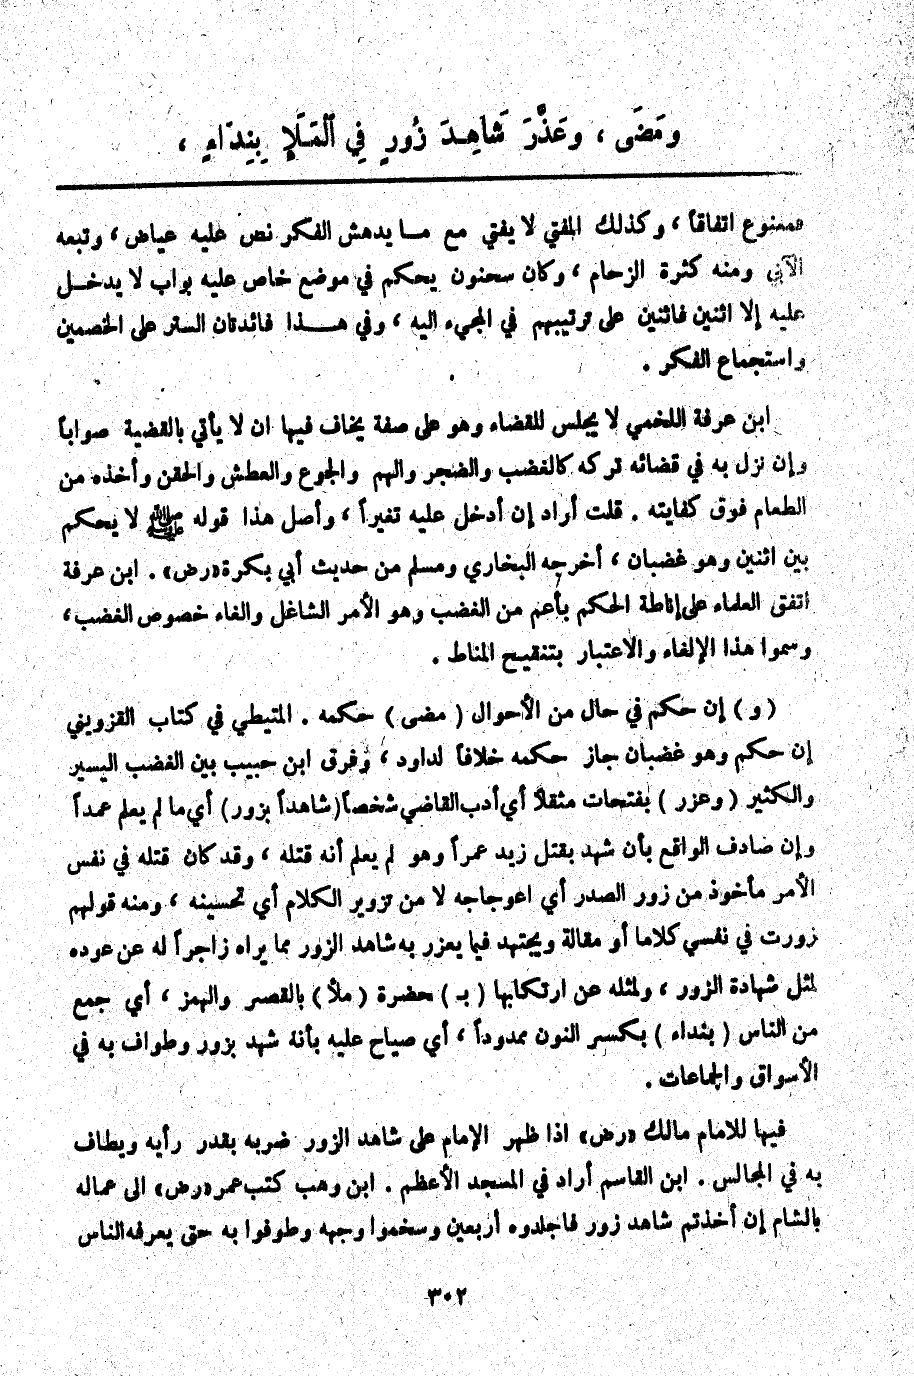 ومَضَى ، وعَذَّرَ شَاهِدَ زُورٍ فِي الْمَلَإِ بِنِدَاءٍ ،
فممنوع اتفاقاً ، وكذلك المفتي لا يفتي مع مـا يدهش الفكر نص عليه عياض ، وتبعه
الآبي ومنه كثرة الزحام ، وكان سحنون يحكم في موضع خاص عليه بواب لا يدخـل
عليه إلا اثنين فاثنين على ترتيبهم في المجيء اليه ، وفي هـذا فائدتان الستر على الخصمين
واستجماع الفكر .
ابن عرفة اللخمي لا يجلس للقضاء وهو على صفة يخاف فيها ان لا يأتي بالقضية صواباً
وإن نزل به في قضائه تركه كالغضب والضجر والهم والجوع والعطش والحقن وأخذه من
الطعام فوق كفايته . قلت أراد إن أدخل عليه تغيراً ، وأصل هذا قوله ﷺ لا يحكم
بين اثنين وهو غضبان ، أخرجه البخاري ومسلم من حديث أبي بكرة «رض» . ابن عرفة
اتفق العلماء على إناطة الحكم بأعم من الغضب وهو الأمر الشاغل والغاء خصوص الغضب ،
وسموا هذا الإلغاء والاعتبار بتنقيح المناط .
( و ) إن حكم في حال من الأحوال ( مضى ) حكمه . المتيطي في كتاب القزويني
إن حكم وهو غضبان جاز حكمه خلافاً لداود ، وفرق ابن حبيب بين الغضب اليسير
والكثير ( وعزر ) بفتحات مثقلاً أي أدب القاضي شخصاً (شاهداً بزور) أي ما لم يعلم عمداً
وإن صادف الواقع بأن شهد بقتل زيد عمراً وهو لم يعلم أنه قتله ، وقد كان قتله في نفس
الأمر مأخوذ من زور الصدر أي اعوجاجه لا من تزوير الكلام أي تحسينه ، ومنه قولهم
زورت في نفسي كلاما أو مقالة ويجتهد فيما يعزر به شاهد الزور مما يراه زاجراً له عن عوده
لمثل شهادة الزور ، ولمثله عن ارتكابها ( بـ ) حضرة ( ملأ ) بالقصر والهمز ، أي جمع
من الناس ( بنداء ) بكسر النون ممدوداً ، أي صياح عليه بأنة شهد بزور وطواف به في
الأسواق والجماعات .
فيها للامام مالك «رض» اذا ظهر الإمام على شاهد الزور ضربه بقدر رأيه ويطاف
به في المجالس . ابن القاسم أراد في المسجد الأعظم . ابن وهب كتب عمر «رض» الى عماله
بالشام إن أخذتم شاهد زور فاجلدوه أربعين وسخموا وجهه وطوفوا به حتى يعرفه الناس
٣٠٢